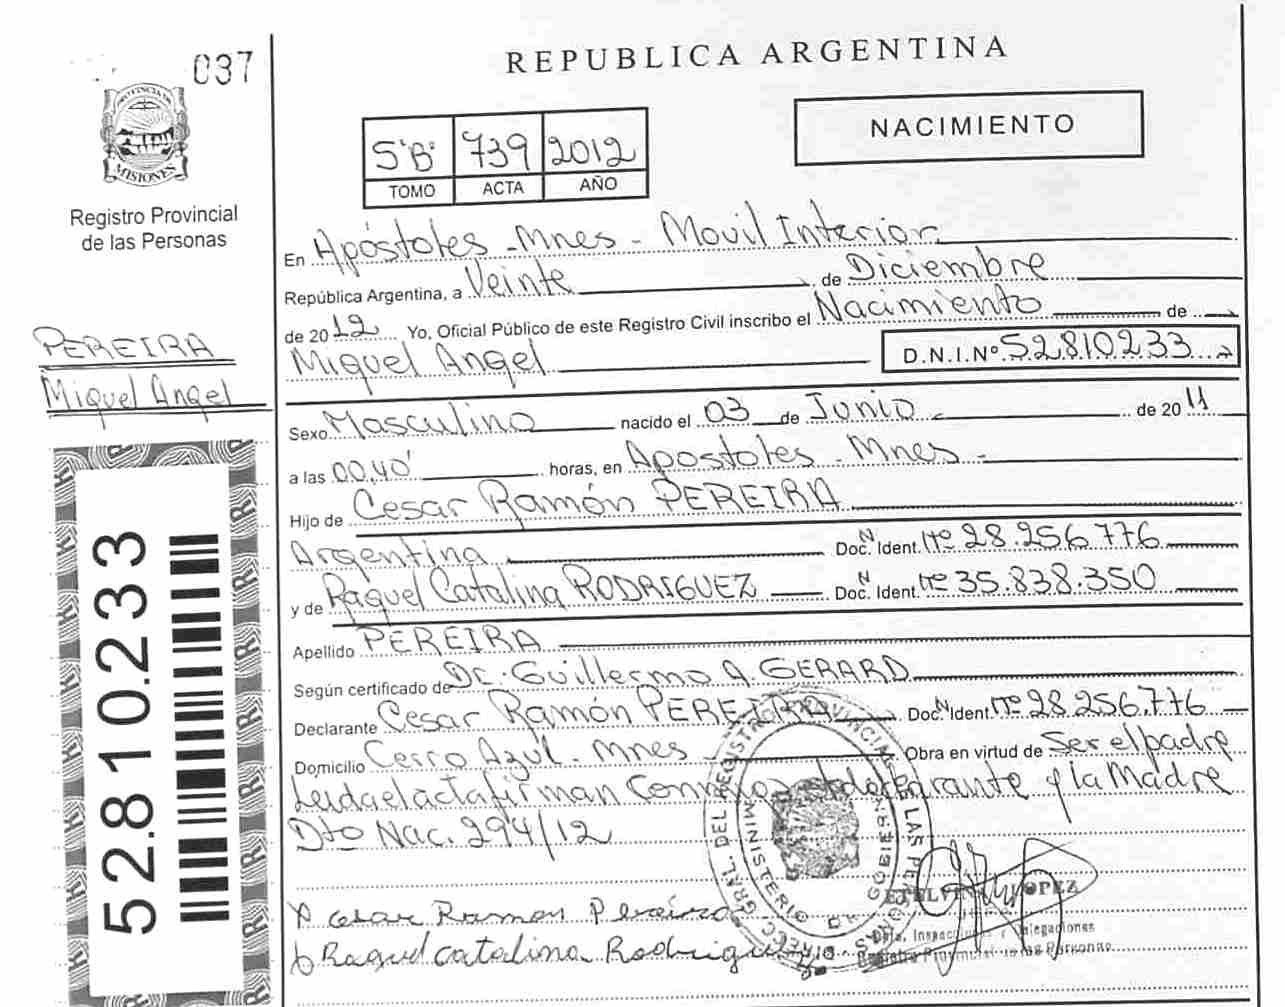 037
REPUBLICA ARGENTINA
PROVINCIA DE
MISIONES
Registro Provincial
de las Personas
5"B" 739 2012
TOMO ACTA AÑO
NACIMIENTO
En Apóstoles - Mnes - Movil Interior.
República Argentina, a Veinte de Diciembre
de 2012 Yo, Oficial Público de este Registro Civil inscribo el Nacimiento de
Miguel Angel D.N.I.Nº 52.810.233
PEREIRA
Miguel Angel
Sexo Masculino nacido el 03 de Junio de 2011
a las 00,40' horas, en Apostoles - Mnes -
Hijo de Cesar Ramón PEREIRA
Argentina Doc. N Ident. Nº 28.256.776
y de Raquel Catalina RODRIGUEZ Doc. N Ident. Nº 35.838.350
Apellido PEREIRA
Según certificado de Dr. Guillermo A. GERARD
Declarante Cesar Ramón PEREIRA Doc. N Ident. Nº 28.256.776
Domicilio Cerro Azul - Mnes - Obra en virtud de Ser el padre
Leida el acta firman Conmigo el declarante y la Madre
Dto Nac. 294/12
Cesar Ramon Pereira
Raquel Catalina Rodriguez
52.810.233
DIRECC. GRAL. DEL REGISTRO PROVINCIAL DE LAS PERSONAS
MINISTERIO DE GOBIERNO
ETELVINA LOPEZ
Dpto. Inspecciones y Delegaciones
Registro Provincial de las Personas